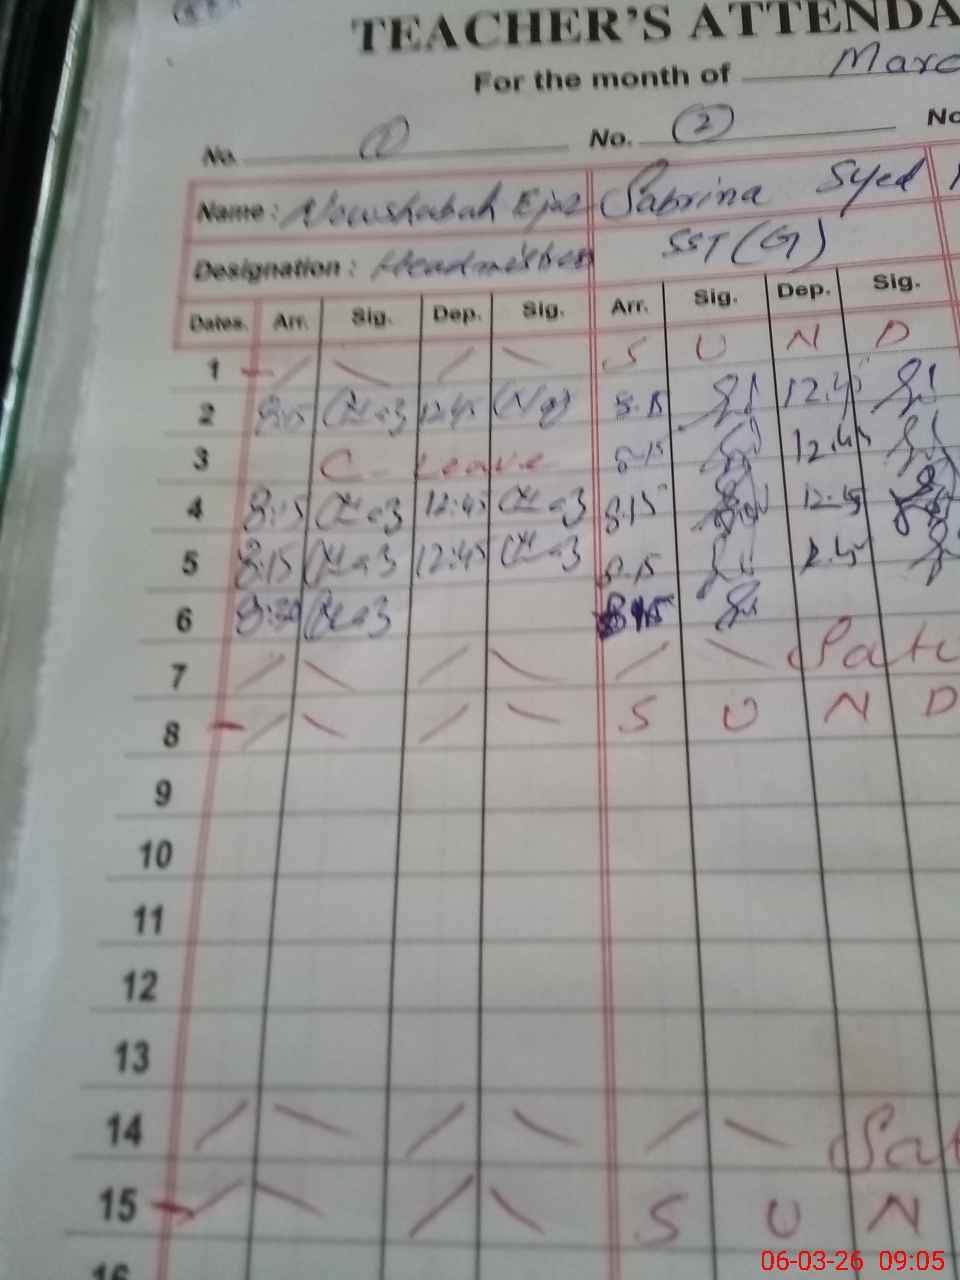 TEACHER'S ATTENDA
For the month of Marc
No. 1 No. 2 No
Name: Nowshabah Ejaz Sabrina Syed
Designation: Headmistress SST (G)
Dates. Arr. Sig. Dep. Sig. Arr. Sig. Dep. Sig.
1 S U N D
2 8:15 12:45 8.15 12.45
3 C. Leave 8.15 12.45
4 8:15 12:45 8.15 12.45
5 8:15 12:45 8.15 12.45
6 8:30 8.15
7 Satu
8 S U N D
9
10
11
12
13
14 Sat
15 S U N
16
06-03-26 09:05